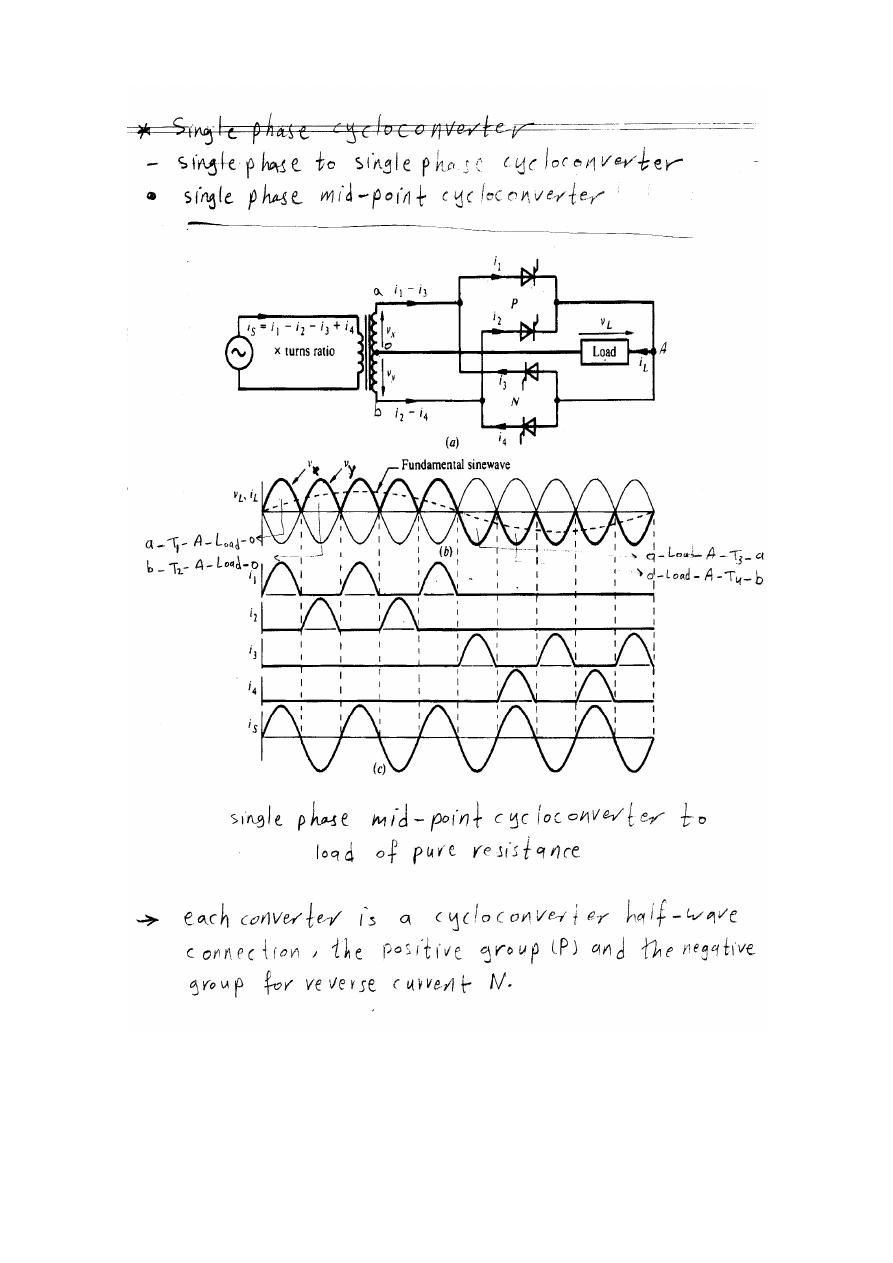 * Single phase cycloconverter
- single phase to single phase cycloconverter
• single phase mid-point cycloconverter
i1
a i1 - i3
P
iS = i1 - i2 - i3 + i4
i2
vL
vx
o
× turns ratio
Load
A
iL
vy
i3
N
b i2 - i4
i4
(a)
vx vy Fundamental sinewave
vL, iL
a-T1-A-Load-o
(b)
o-Load-A-T3-a
b-T2-A-Load-o
o-Load-A-T4-b
i1
i2
i3
i4
iS
(c)
single phase mid-point cycloconverter to
load of pure resistance
→ each converter is a cycloconverter half-wave
connection, the positive group (P) and the negative
group for reverse current N.